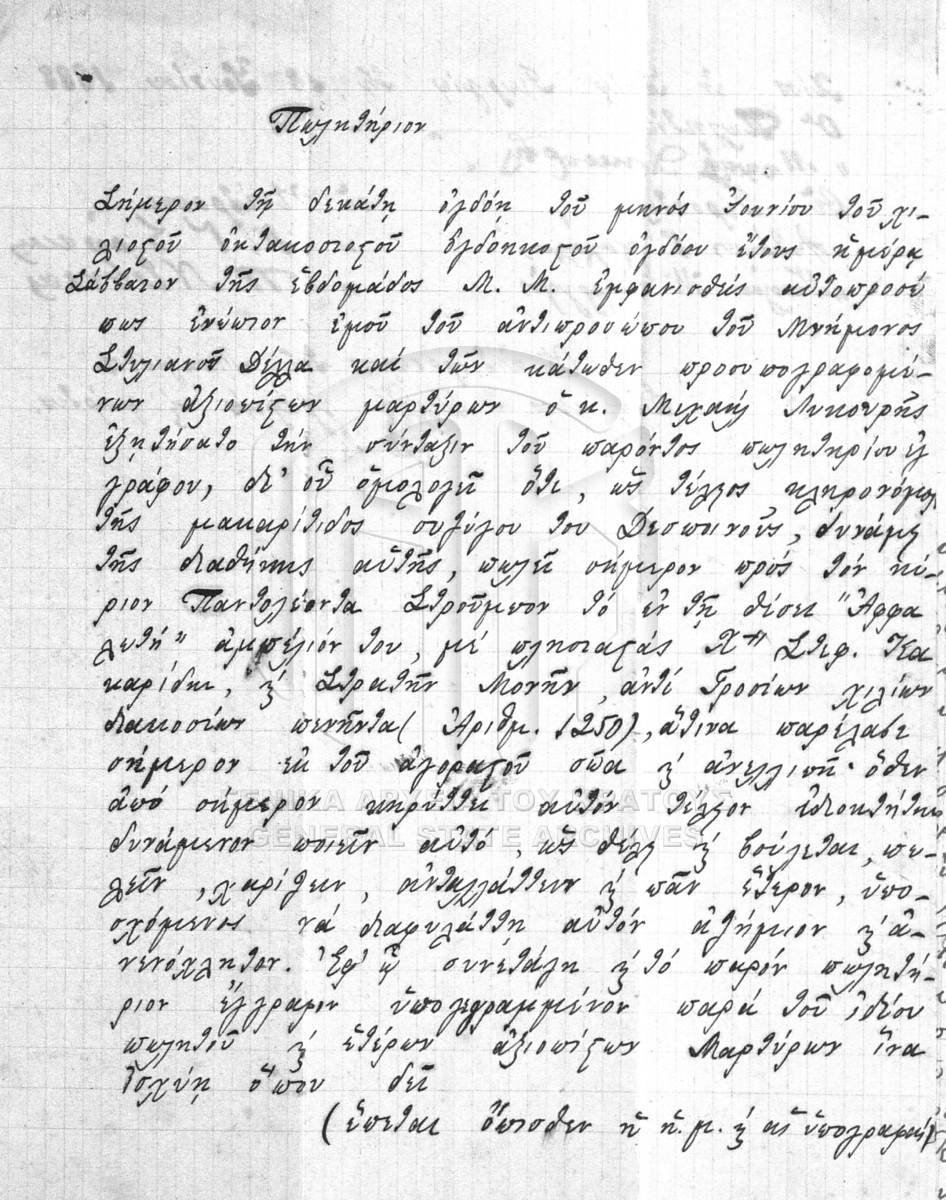 Πωλητήριον
Σήμερον τῇ δεκάτῃ ὀγδόῃ τοῦ μηνός Ἰουνίου τοῦ χι-
λιοστοῦ ὀκτακοσιοστοῦ ὀγδοηκοστοῦ ὀγδόου ἔτους ἡμέρᾳ
Σάββατον τῆς ἑβδομάδος Μ. Μ. ἐμφανισθείς αὐτοπροσώ
πως ἐνώπιον ἐμοῦ τοῦ ἀντιπροσώπου τοῦ Μνήμονος
Στυλιανοῦ Δέλλα καί τῶν κάτωθεν προσυπογραφομέ-
νων ἀξιοπίστων μαρτύρων ὁ κ. Μιχαήλ Λυκούρης
ἐξητήσατο τήν σύνταξιν τοῦ παρόντος πωλητηρίου ἐγ
γράφου, δι' οὗ ὁμολογεῖ ὅτι, ὡς τέλειος κληρονόμος
τῆς μακαρίτιδος συζύγου του Δεσποινοῦς, δυνάμει
τῆς διαθήκης αὐτῆς, πωλεῖ σήμερον πρός τόν κύ-
ριον Παντολέοντα Στρούμπον τό ἐν τῇ θέσει "Ἀφφα
λωτή" ἀμπέλιόν του, μέ πλησιαστάς Χʺ Στεφ. Κα
καρίδην, καί Στρατήν Μονῆν, ἀντί Γροσίων χιλίων
διακοσίων πενῆντα (Ἀριθμ. 1250), ἅτινα παρέλαβε
σήμερον ἐκ τοῦ ἀγοραστοῦ σῶα καί ἀνελλιπῆ· ὅθεν
ἀπό σήμερον κηρύττει αὐτόν τέλειον ἰδιοκτήτην
δυνάμενον ποιεῖν αὐτό, ὡς θέλει καί βούλεται, πω-
λεῖν, χαρίζειν, ἀνταλλάττειν καί πᾶν ἕτερον, ὑπο-
σχόμενος νά διαφυλάττῃ αὐτόν ἀζήμιον καί ἀ-
νενόχλητον. Ἐφ' ᾧ συνετάγη καί τό παρόν πωλητή-
ριον ἔγγραφον ὑπογεγραμμένον παρά τοῦ ἰδίου
πωλητοῦ καί ἑτέρων ἀξιοπίστων Μαρτύρων ἵνα
ἰσχύῃ ὅπου δεῖ
(ἕπεται ὄπισθεν ἡ ἡ. μ. καί αἱ ὑπογραφαί)
ΓΕΝΙΚΑ ΑΡΧΕΙΑ ΤΟΥ ΚΡΑΤΟΥΣ
GENERAL STATE ARCHIVES